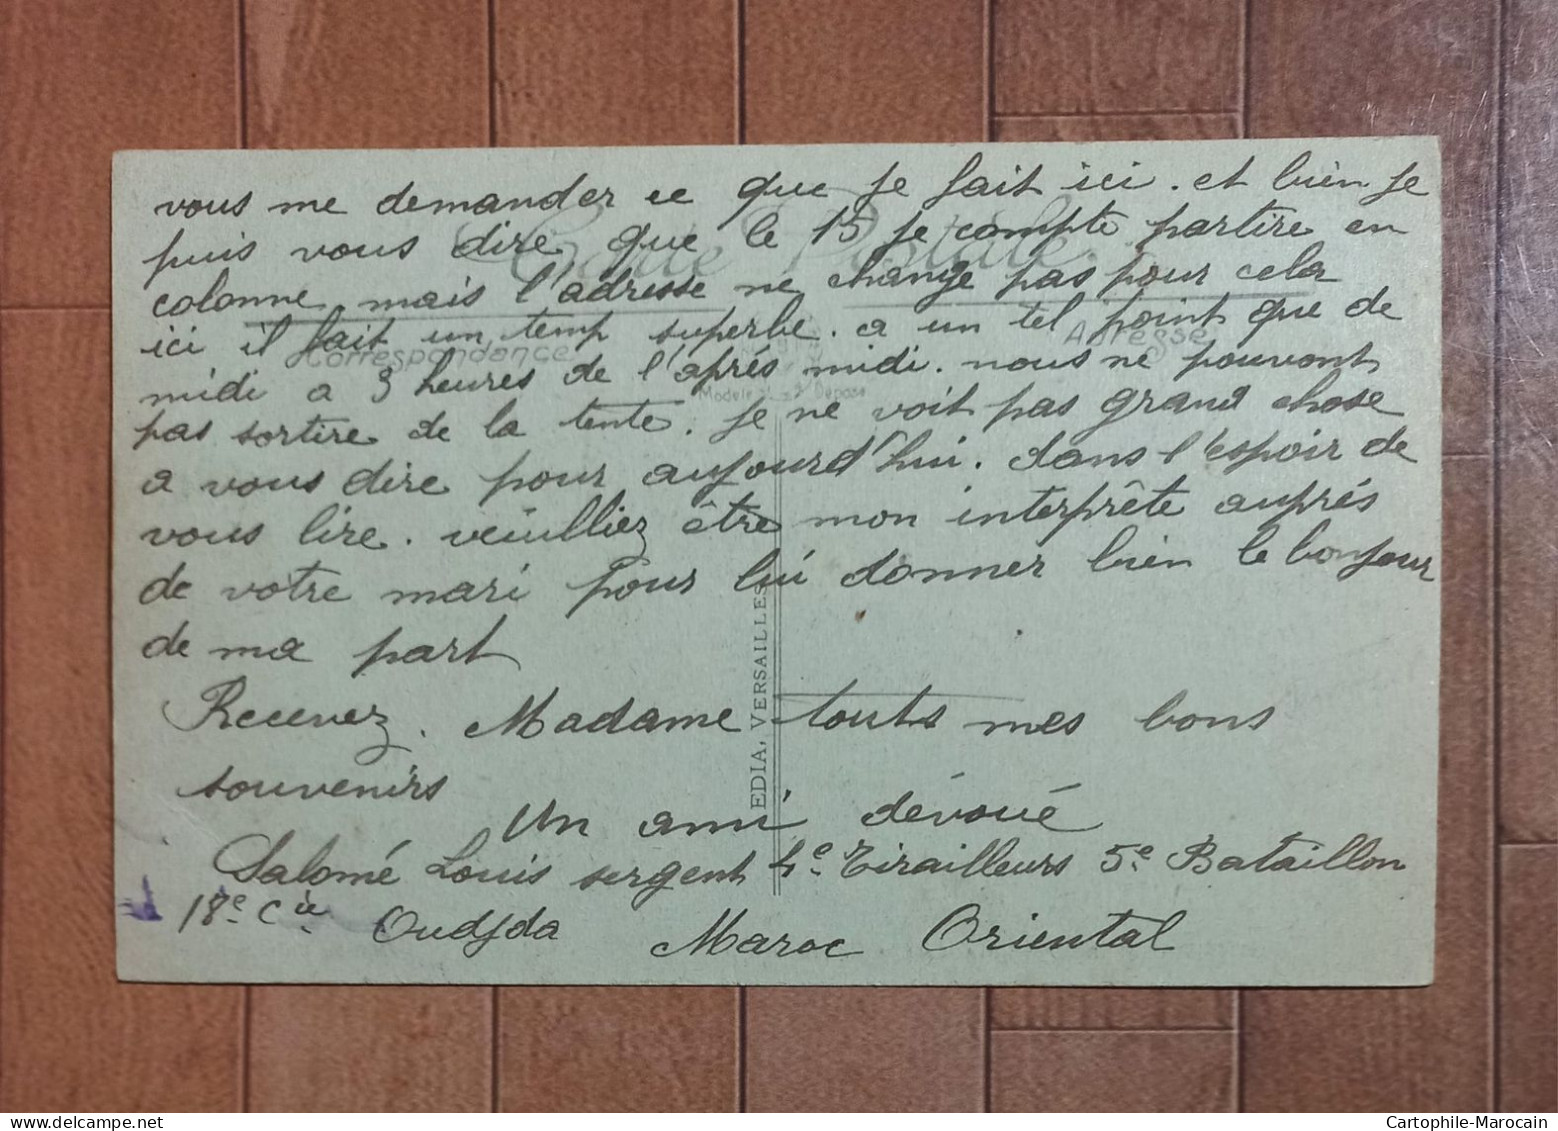 vous me demander ce que je fait ici. et bien je
puis vous dire que le 15 je compte partire en
colonne mais l'adresse ne change pas pour cela
ici il fait un temp superbe. a un tel point que de
midi a 3 heures de l'aprés midi. nous ne pouvont
pas sortire de la tente. je ne voit pas grand chose
a vous dire pour aujourd'hui. dans l'espoir de
vous lire. veuilliez être mon interprête auprés
de votre mari pour lui donner bien le bonjour
de ma part
Recevez. Madame touts mes bons
souvenirs
Un ami dévoué
Salomé Louis sergent 4e Tirailleurs 5e Bataillon
18e Cie Oudjda Maroc Oriental
Carte Postale
Correspondance
Adresse
Modele Déposé
EDIA, VERSAILLES
Cartophile-Marocain
delcampe.net